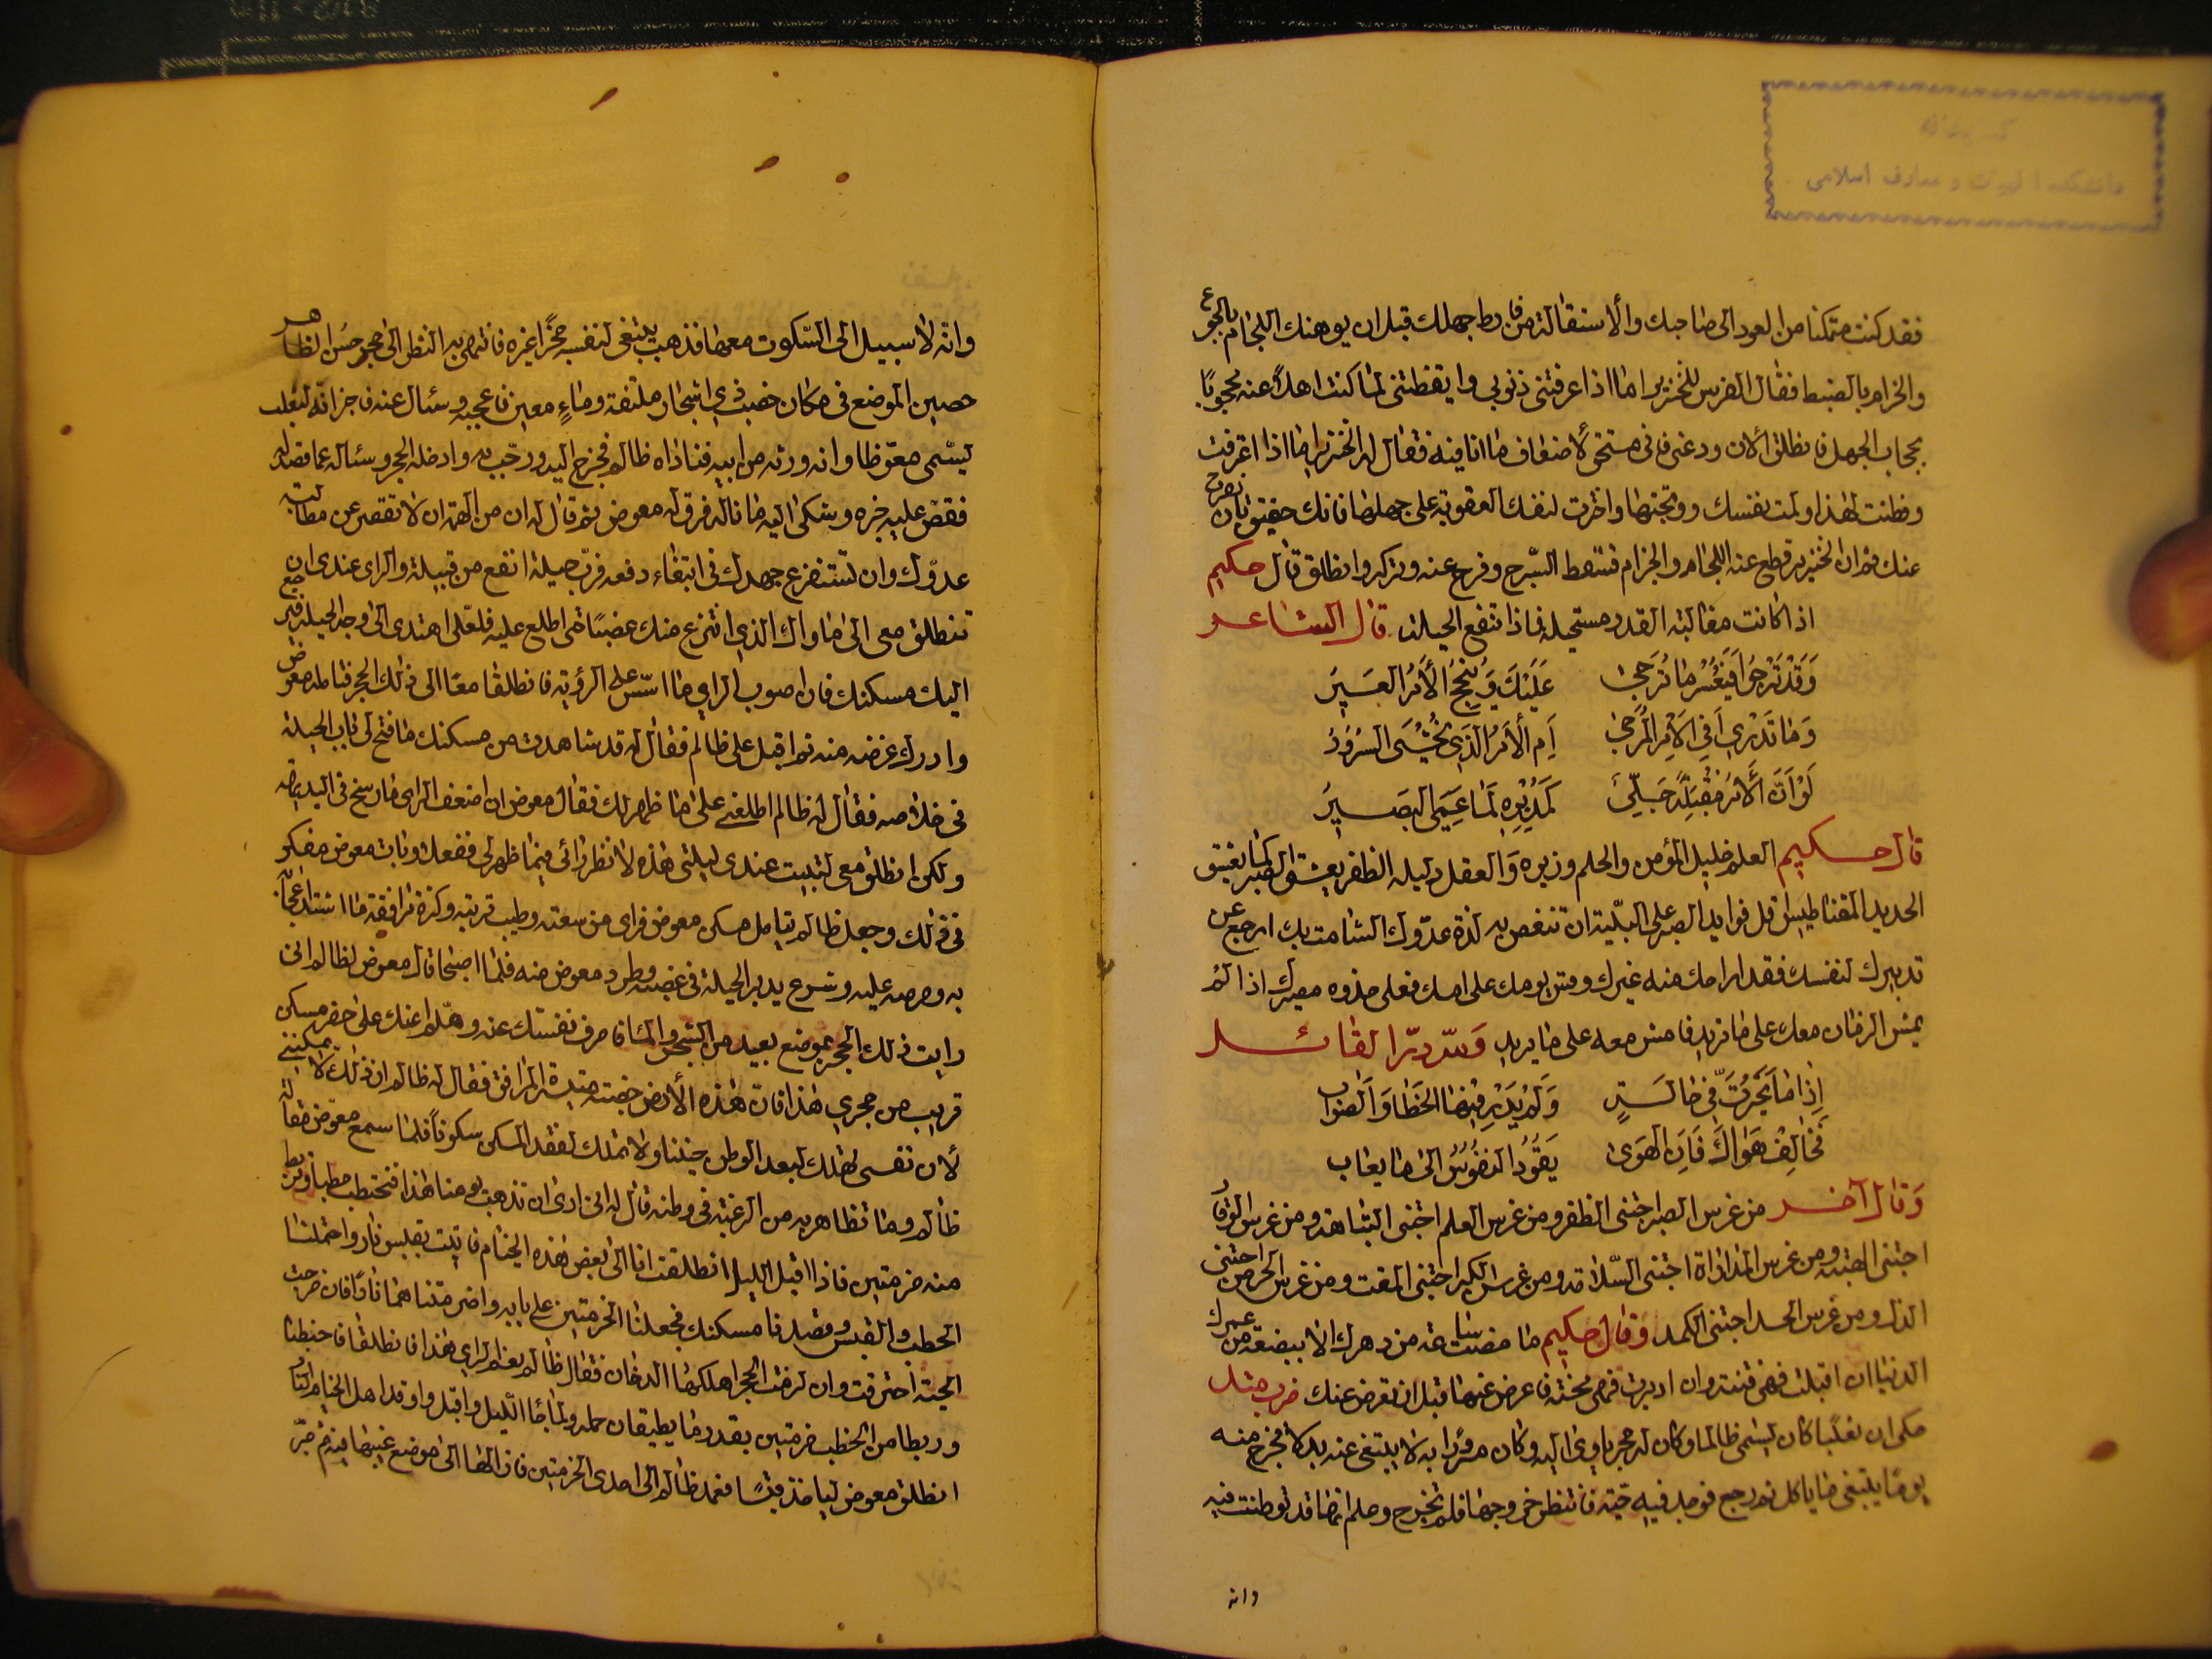 كتابخانه
دانشكده الهيات و معارف اسلامى
فقد كنت متمكنا من العود الى صاحبك والاستقالة من فارط جهلك قبل ان يوهنك اللجام بالجوع
والحزام بالضبط فقال الفرس للخنزير اما اذا عرفتنى ذنوبى وايقظتنى لما كنت اهلا عنه محجوبًا
بحجاب الجهل فانطلق الان ودعنى فانى مستحق لاضعاف ما انا فيه فقال له الخنزير اما اذا اعترفت
وفطنت لهذا ولمت نفسك ووبختها واخترت لنفسك العقوبة على جهلها فانك حقيق بان يفرج
عنك ثم ان الخنزير قطع عنه اللجام والحزام فسقط السّرج وفرج عنه وتركه وانطلق قال حكيم
اذا كانت مغالبة القدر مستحيله فماذا تنفع الحيلة قال الشاعر
وَقَدْ تَرْجُوا فَيَعْسُرُ مَا تُرَجّى عَلَيْكَ وَيُنْجَحُ الأَمْرُ العَسِيرُ
وَمَا تَدْرِي اَفِي الاَمْرِ المُرَجّى اَمِ الاَمْرُ الَّذِي تُخْشَى السُرُورُ
لَوْ اَنَّ الاَمْرَ مُقْبِلُهُ جَلِيٌّ كَمُدْبِرِهِ لَمَا عَمِيَ البَصِيرُ
قال حكيم العلم خليل المؤمن والحلم وزيره وَالعقل دليله الظفر يعشق الصبر كما يعشق
الحديد المقناطيس قل فوايد الصبر على البليّة ان تنغص به لذة عدّوك الشامت بك ارجع عن
تدبيرك لنفسك فقد اراحك منه غيرك وقس يومك على امسك فعلى حذوه مصيرك اذا لم
يمش الزمان معك على ما تريد فامش معه على ما يريد وَلله درّ القائل
اِذَا مَا تَحَيَّرْتَ فِى حَالَةٍ وَلَمْ تَدْرِ فِيْهَا الخَطَا وَالصَّوَاب
فَخَالِفْ هَوَاكَ فَاِنَّ الهَوَى يَقُودُ النُفُوسَ الى مَا يعَاب
وَقال آخر من غرس الصبر اجتنى الظفر ومن غرس العلم اجتنى النباهة ومن غرس الوقار
اجتنى الهيبة ومن غرس المداراة اجتنى السّلامة ومن غرس الكبر اجتنى المقت ومن غرس الحرص اجتنى
الذل ومن غرس الحسد اجتنى الكمد وَقال حكيم ما مضت ساعة من دهرك الا ببضعة من عمرك
الدنيا ان اقبلت فهى فتنة وان ادبرت فهى محنة فاعرض عنها قبل ان تعرض عنك ضرب مثل
حكى ان ثعلبًا كان يسمى ظالما وكان له حجر ياوى اليه وكان مسرورا به لا يبتغى عنه بدلا فخرج منه
يومًا يبتغى ما ياكل ثم رجع فوجد فيه حيّة فانتظر خروجها فلم تخرج وعلم انها قد توطنت فيه
وانه
وانه لا سبيل الى السّكون معها فذهب يبتغى لنفسه حجرًا غيره فانتهى به النظر الى حجر حسن الظاهر
حصين الموضع فى مكان خصيب ذى اشجار ملتفة وماءٍ معين فاعجبه وسئال عنه فاخبر انه لثعلب
يسّمى معوّضا وانه ورثه من ابيه فناداه ظالم فخرج اليه ورحّب به وادخله الحجر وسئاله عما قصد له
فقصّ عليه خبره وشكى اليه ما ناله فرق له معوض ثم قال له ان من الهمة ان لا تقصر عن مطالبة
عدوّك وان تستفرغ جهدك فى ابتغاء دفعه فربّ حيلة انفع من قبيلة والراى عندى ان
تنطلق معى الى ماواك الذى انتزع منك غصبًا حتى اطلع عليه فلعّلى اهتدى الى وجه الحيلة فيرجع
اليك مسكنك فان اصوب الراى ما اسّس على الرؤية فانطلقا معًا الى ذلك الحجر فتامله معوض
وادرك غرضه منه ثم اقبل على ظالم فقال له قد شاهدت من مسكنك ما فتح لى باب الحيلة
فى خلاصه فقال له ظالم اطلعنى على ما ظهر لك فقال معوض ان اضعف الراى ما سنح فى البديهة
ولكن انطلق معى لتبيت عندى ليلتى هذه لانظر رائى فيما ظهر لى ففعل وبات معوض مفكر
فى ذلك وجعل ظالم يتامل مسكن معوض فراى من سعته وطيب تربته وكثرة مرافقه ما اشتد اعجابه
به وحرصه عليه وشرع يدبر الحيلة فى غصبه وطرد معوض منه فلما اصبحا قال معوض لظالم انى
رايت ذلك الحجر بموضع بعيد من الشجر والماء فاصرف نفسك عنه وهلّم اعنك على حفر مسكن
قريب من حجرى هذا فان هذه الأرض خصبة متيسرة المرافق فقال له ظالم ان ذلك لا يمكننى
لان نفسى تهلك لبعد الوطن حنينا ولا تملك لفقد المسكن سكونًا فلما سمع معوّض مقالة
ظالم وما تظاهر به من الرغبة فى وطنه قال له انى ارى ان نذهب يومنا هذا فنحتطب حطبا ونربط
منه حزمتين فاذا اقبل الليل انطلقت انا الى بعض هذه الخيام فاتيت بقبس نار واحتملنا
الحطب والقبس وقصدنا مسكنك فجعلنا الحزمتين على بابه واضرمناهما نارًا فان خرجت
الحيّة احترقت وان لزمت الحجر اهلكها الدخان فقال ظالم نعم الراى هذا فانطلقا فاحتطبا
وربطا من الحطب حزمتين بقدر ما يطيقان حمله ولما جاء اللّيل واقبل واوقد اهل الخيام النار
انطلق معوض لياخذ قبسًا فعمد ظالم الى احدى الحزمتين فازالها الى موضع غيبها فيه ثم جرّ